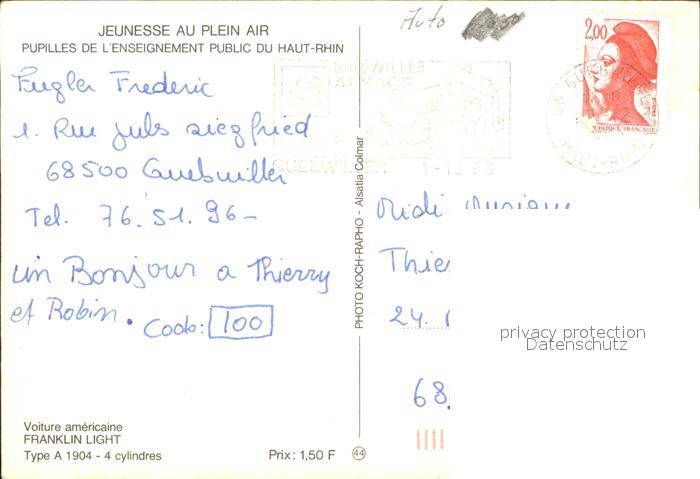 JEUNESSE AU PLEIN AIR
PUPILLES DE L'ENSEIGNEMENT PUBLIC DU HAUT-RHIN
Auto
2,00
Frederic
1. Rue Juls Siegfried
68500 Guebwiller
Tel. 76.51.96-
un Bonjour a Thierry
et Robin. Coob: 100
GUEBWILLER
ALSACE
GUEBWILLER 1-12 83
68 GUEBWI
HAUT-RHIN
PUBLIQUE FRANCAISE
PHOTO KOCH-RAPHO - Alsatia Colmar
Midi
Thie
24.
68
privacy protection
Datenschutz
Voiture américaine
FRANKLIN LIGHT
Type A 1904 - 4 cylindres
Prix : 1,50 F
44